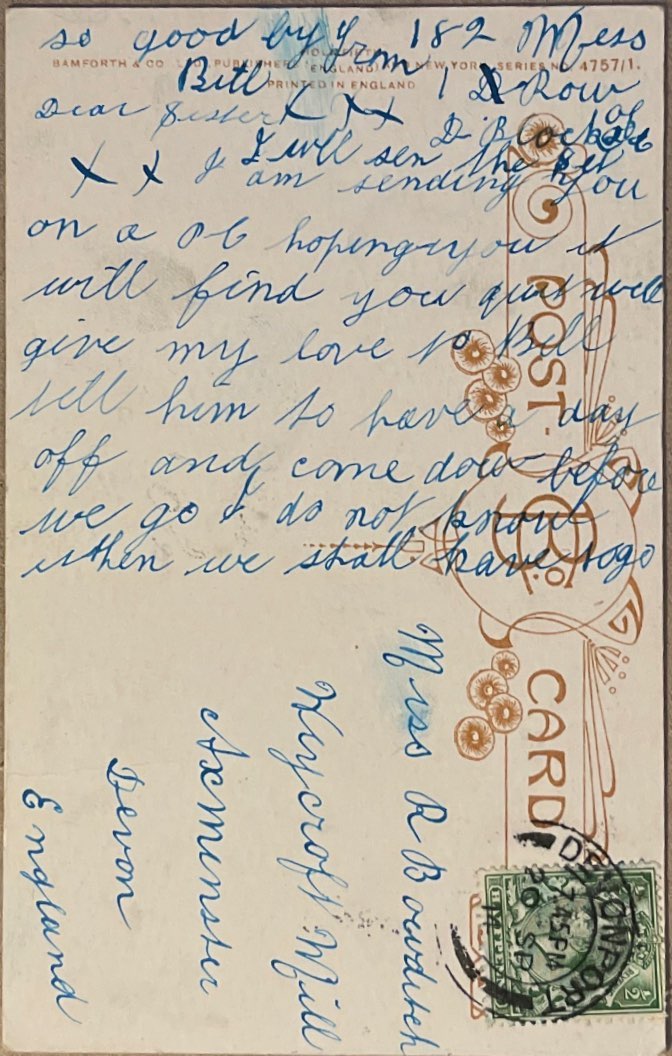 so good by from 182 Mess
HOLMFIRTH
BAMFORTH & CO LTD., PUBLISHERS (ENGLAND) AND NEW YORK. SERIES NO. 4757/1.
PRINTED IN ENGLAND
Bill 1 D Row
Dear Sister X X X D Block
X X I will sen the
I am sending you
on a PC hoping you it
will find you quit well
give my love to Bill
tell him to have a day
off and come dow before
we go I do not know
when we shall have to go
POST
B & Co.
CARD
Miss R Bowditch
Weycroft Mill
Axminster
Devon
England
DEVONPORT
7.45 PM
20 SP